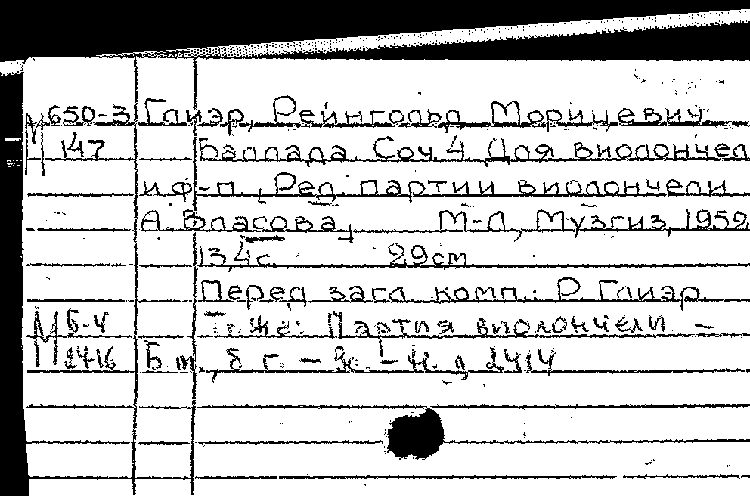 М 650-3 Глиэр, Рейнгольд Морицевич.
147 Баллада. Соч. 4. Для виолончел
и ф-п. Ред. партии виолончели
А. Власова, М-Л, Музгиз, 1952
13,4 с. 29 см
Перед загл. комп.: Р. Глиэр.
М Б-4 То же: Партия виолончели –
2416 Б. м., б г. –